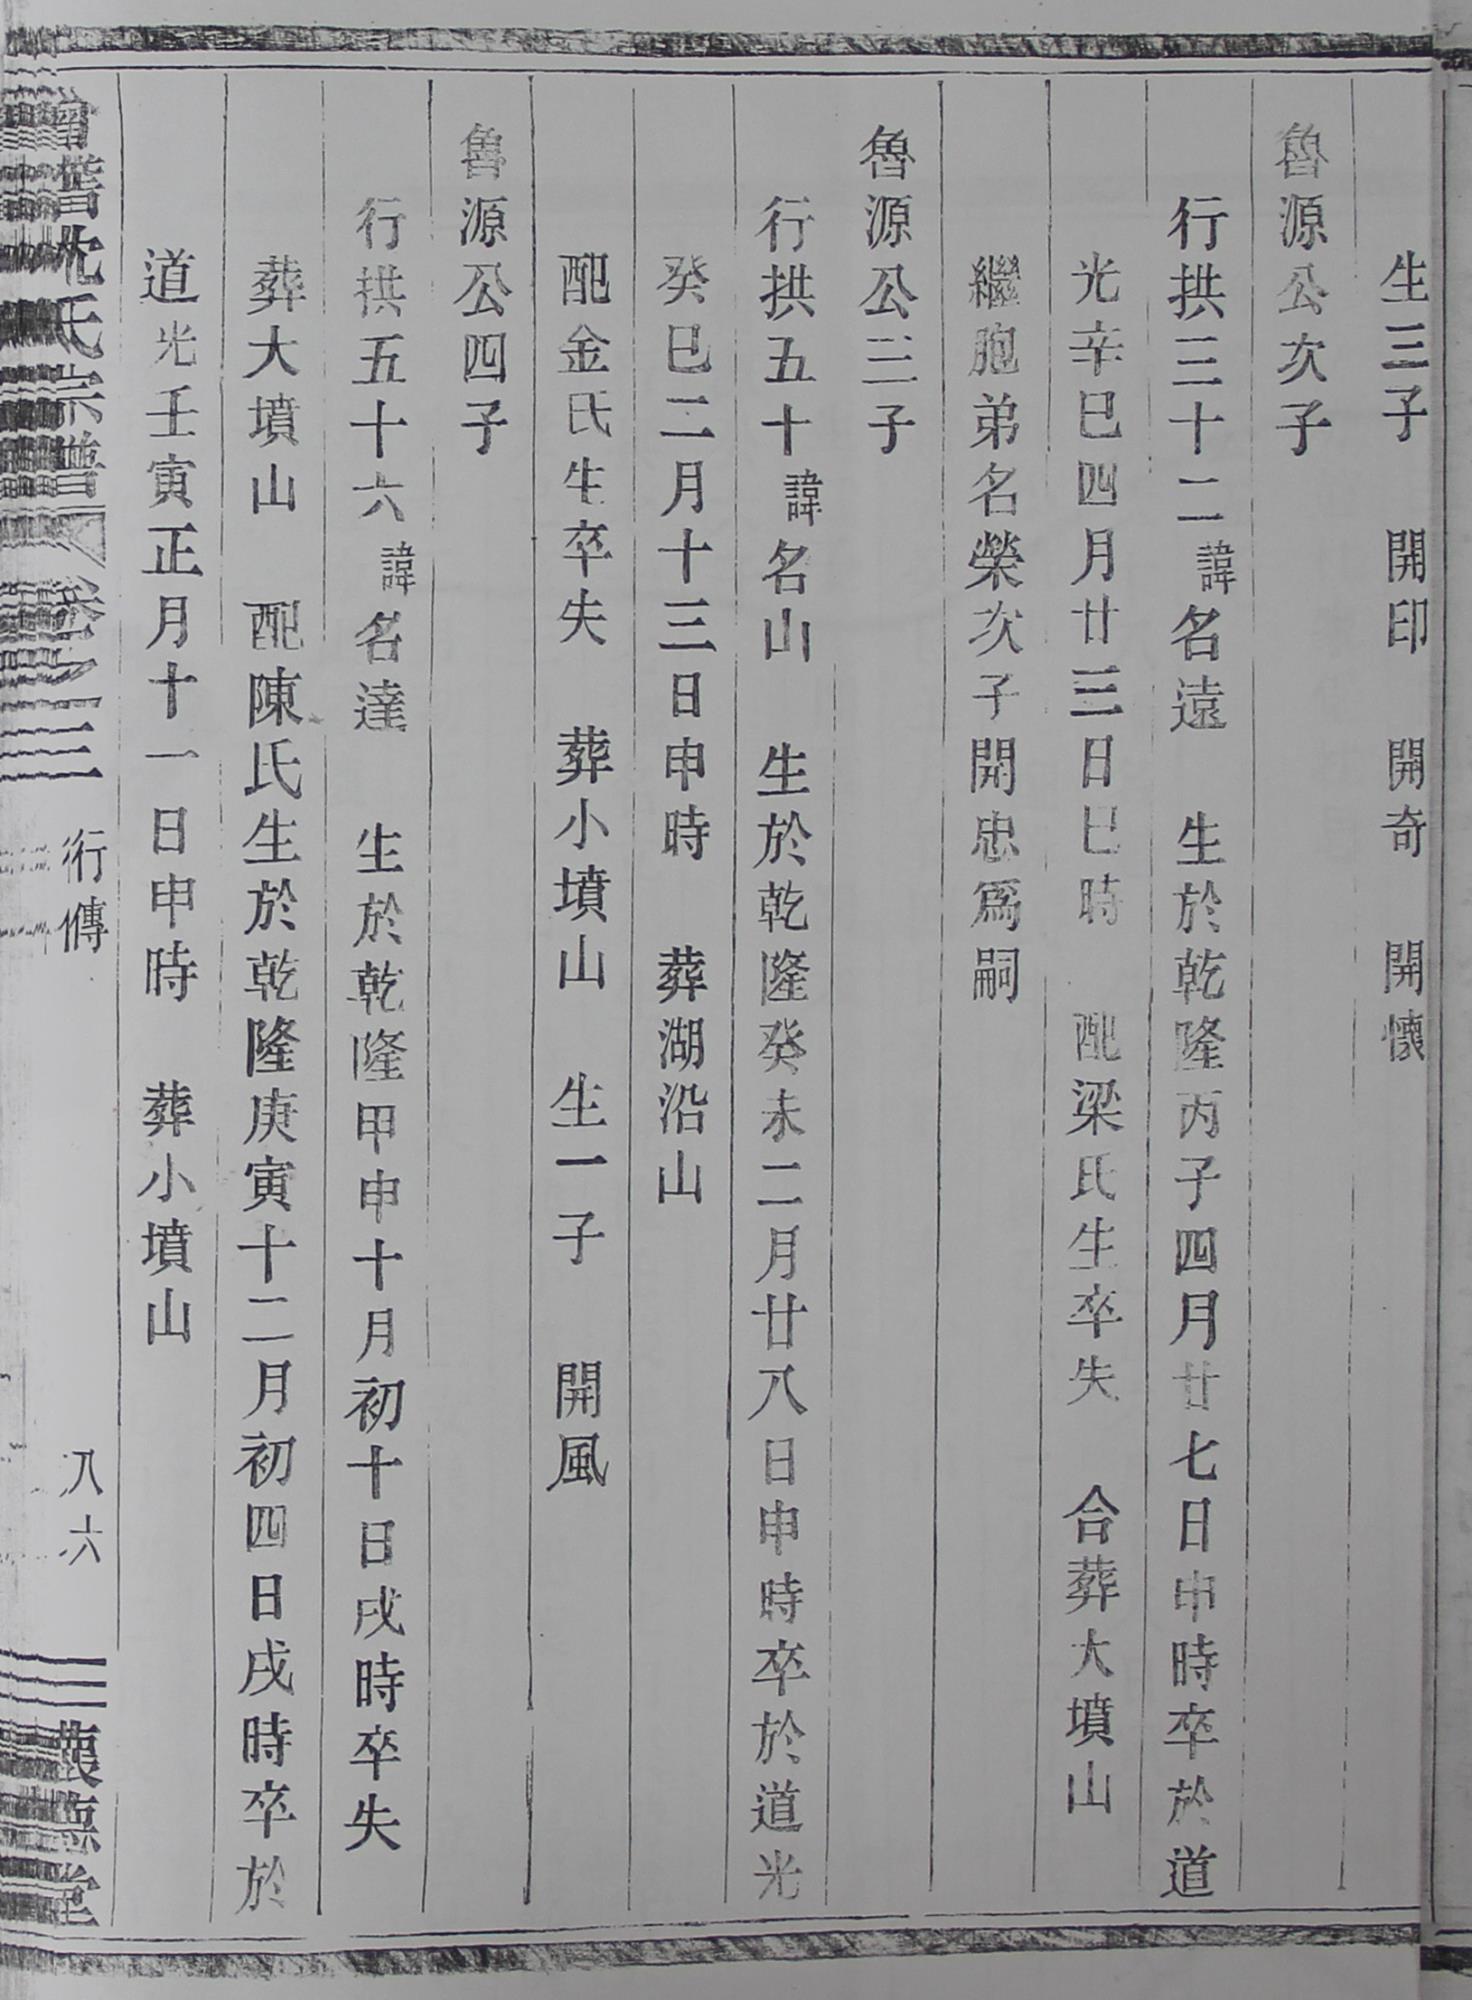 生三子　開印　開奇　開懷
魯源公次子
行拱三十二諱名遠　生於乾隆丙子四月廿七日申時卒於道
光辛巳四月廿三日巳時　配梁氏生卒失　合葬大墳山
繼胞弟名榮次子開忠爲嗣
魯源公三子
行拱五十諱名山　生於乾隆癸未二月廿八日申時卒於道光
癸巳二月十三日申時　葬湖沿山
配金氏生卒失　葬小墳山　生一子　開風
魯源公四子
行拱五十六諱名達　生於乾隆甲申十月初十日戌時卒失
葬大墳山　配陳氏生於乾隆庚寅十二月初四日戌時卒於
道光壬寅正月十一日申時　葬小墳山
暨沈氏宗譜　卷之三　行傳　八六　德堂